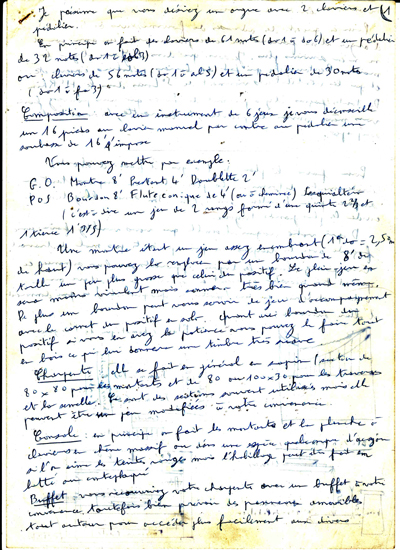 Je pense que vous désirez un orgue avec 2 claviers et 1
pédalier.
En principe on fait des claviers de 61 notes (do 1 = do 6) et un pédalier
de 32 notes (do 1 =
ou claviers de 56 notes (do 1 = à sol 5) et un pédalier de 30 notes
(do 1 = fa 3)
Composition avec un instrument de 6 jeux je vous déconseille
un 16 pieds au clavier manuel par contre au pédalier une
soubasse de 16' s'impose
Vous pouvez mettre par exemple.
G.O. Montre 8' Prestant 4' Doublette 2'
POS Bourdon 8' Flûte conique de 4' (ou à cheminée) Sesquialtera
(c'est à dire un jeu de 2 rangs formé d'une quinte 2 2/3 et
1 tierce 1 3/5)
Une montre étant un jeu assez encombrant (1er do = 2,50m
de haut) vous pouvez la remplacer par un bourdon de 8' de
taille un peu plus grosse que celui du positif. Le plein jeu en
sera moins brillant mais sonnera très bien quand même.
De plus un bourdon peut vous servir de jeu d'accompagnement
avec le cornet du positif en solo. Quant au bourdon du
positif si vous en avez la patience vous pouvez le faire tout
en bois ce qui lui donnera un timbre très
Charpente elle se fait en général en sapin (section de
80 x 80 pour les montants et de 80 ou 100 x 30 pour les traverses
et la semelle. Ce sont des sections souvent utilisées mais elle
peuvent être un peu modifiées à votre convenance.
Console: en principe on fait les montants et la planche à
claviers en chêne massif ou dans un espèce quelconque d'acajou
si l'on aime les teintes rouges mais l'habillage peut être fait en
latté ou contreplaqué
Buffet vous recouvrirez votre charpente avec un buffet à votre
convenance toutefois bien prévoir des panneaux amovibles
tout autour pour accéder plus facilement aux divers